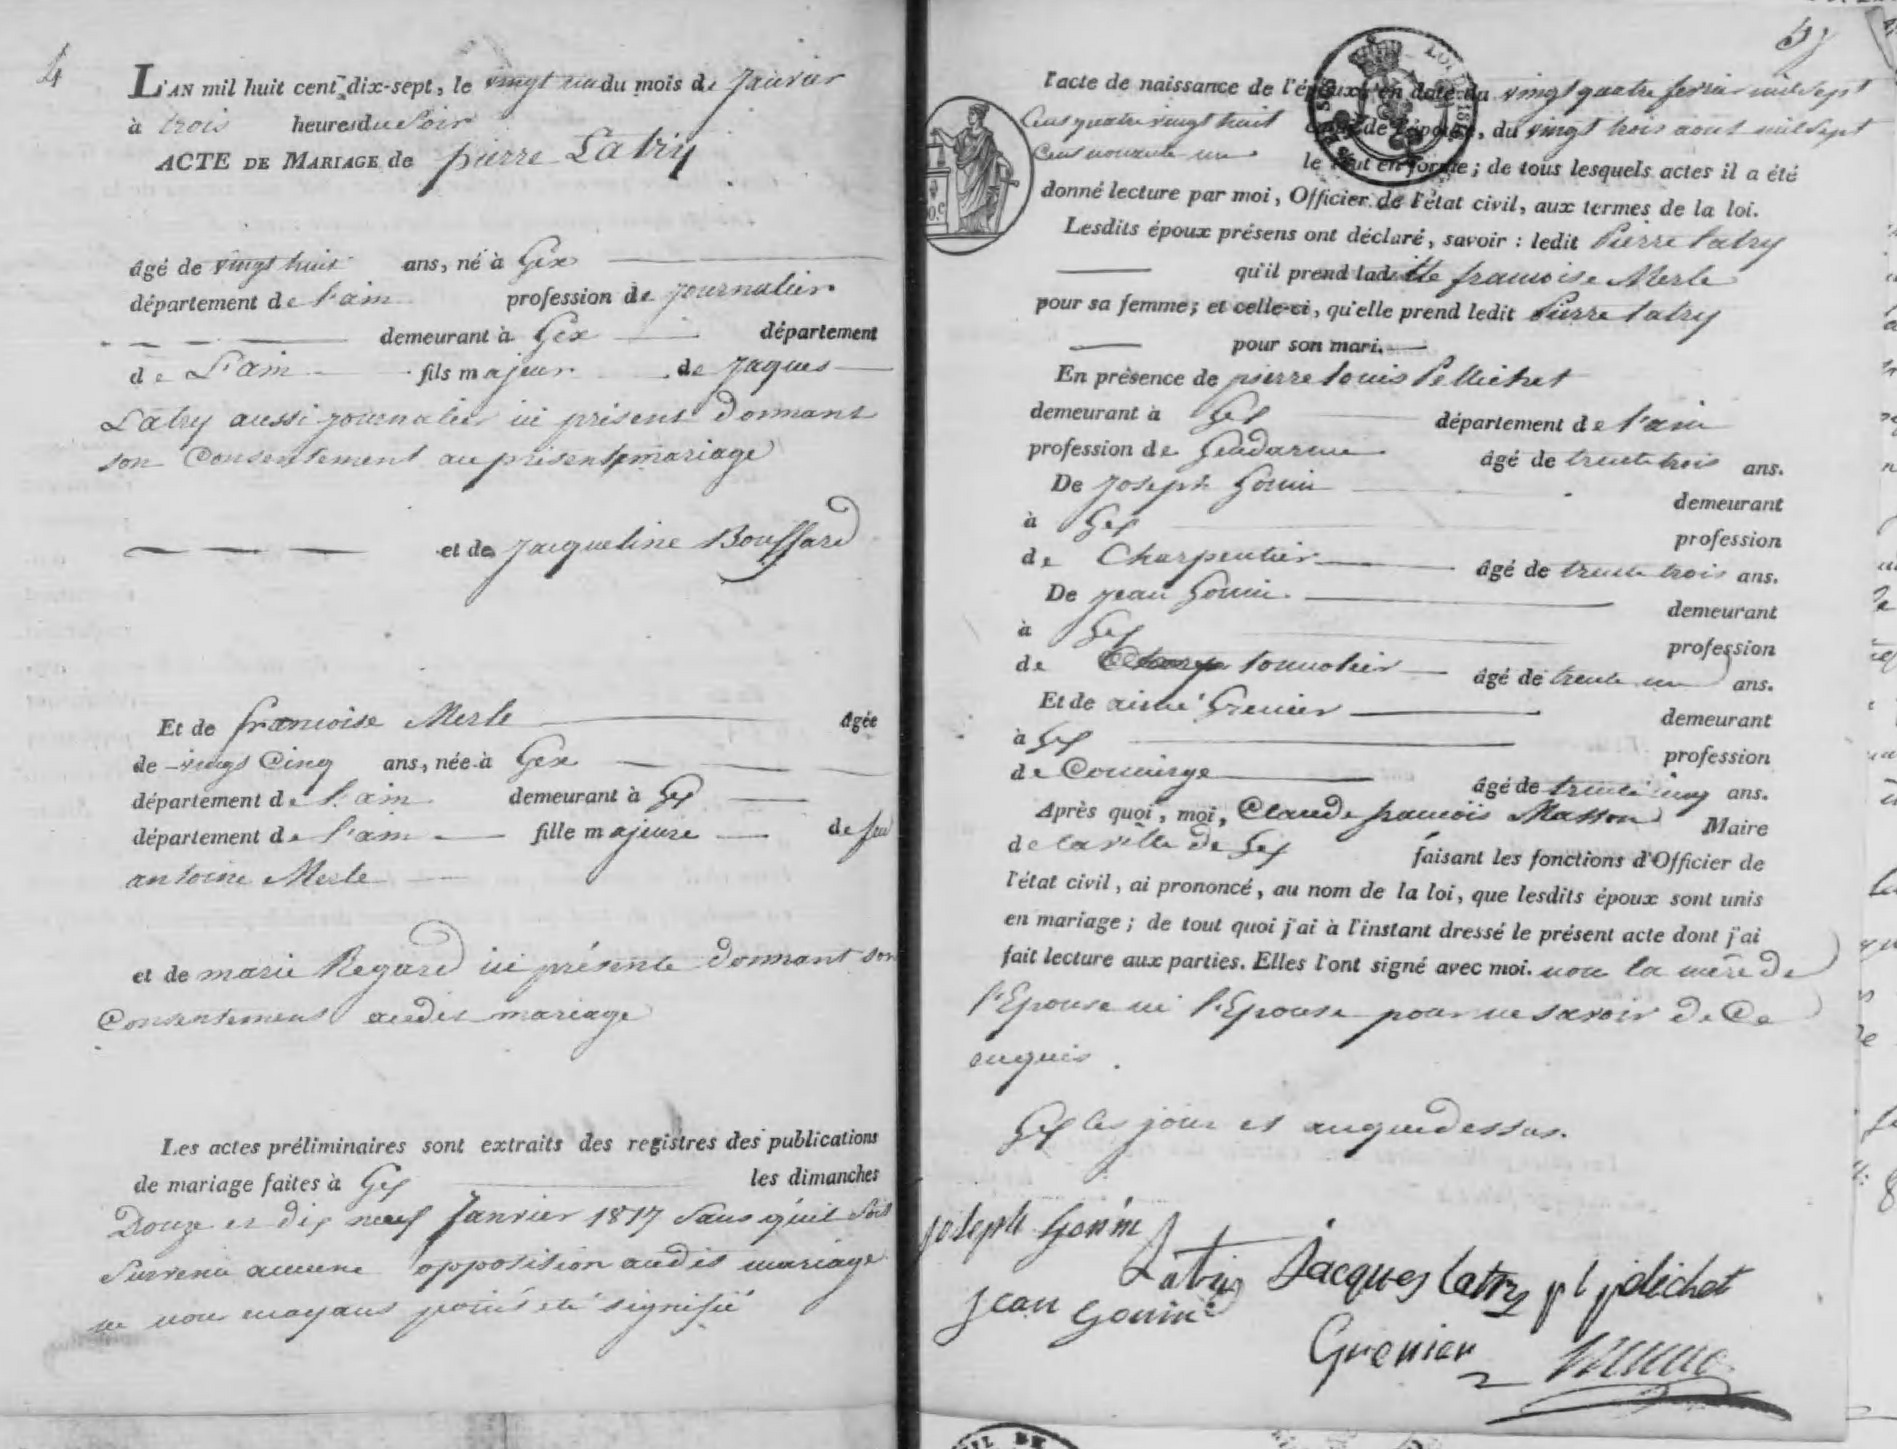 4
L'AN mil huit cent dix-sept, le vingt un du mois de Janvier
à trois heures du Soir
ACTE DE MARIAGE de pierre Latry
âgé de vingt huit ans, né à Gex
département de l'ain profession de journalier
demeurant à Gex département
de L'ain fils majeur de Jaques
Latry aussi journalier ici présent donnant
son Consentement au présent mariage
et de Jacqueline Bouffard
Et de francoise Merle âgée
de vingt Cinq ans, née à Gex
département de l'ain demeurant à Gex
département de l'ain fille majeure de feu
antoine Merle
et de marie Regard ici présente donnant son
Consentement audit mariage
Les actes préliminaires sont extraits des registres des publications
de mariage faites à Gex les dimanches
Douze et dix neuf Janvier 1817 sans qu'il soit
survenu aucune opposition audit mariage
ne nous ayant point été signifié
l'acte de naissance de l'époux en date du vingt quatre fevrier mil sept
Cent quatre vingt huit celui de l'épouse, du vingt trois aout mil sept
Cent nonante un
le tout en forme ; de tous lesquels actes il a été
donné lecture par moi, Officier de l'état civil, aux termes de la loi.
Lesdits époux présens ont déclaré, savoir : ledit Pierre Latry
qu'il prend ladite francoise Merle
pour sa femme ; et celle-ci, qu'elle prend ledit Pierre Latry
pour son mari.
En présence de pierre Louis Pellichet
demeurant à Gex département de l'ain
profession de Gendarme âgé de trente trois ans.
De Joseph Gonin demeurant
à Gex profession
de Charpentier âgé de trente trois ans.
De Jean Gonin demeurant
à Gex profession
de tonnelier âgé de trente un ans.
Et de aimé Grenier demeurant
à Gex profession
de Concierge âgé de trente cinq ans.
Après quoi, moi, Claude francois Masson Maire
de la ville de Gex faisant les fonctions d'Officier de
l'état civil, ai prononcé, au nom de la loi, que lesdits époux sont unis
en mariage ; de tout quoi j'ai à l'instant dressé le présent acte dont j'ai
fait lecture aux parties. Elles l'ont signé avec moi. non la mère de
l'Epouse ni l'Epouse pour ne savoir de Ce
enquis
Gex les jour et an que dessus.
Joseph Gonin
Latry Jacques Latry p l pelichet
Jean Gonin
Grenier